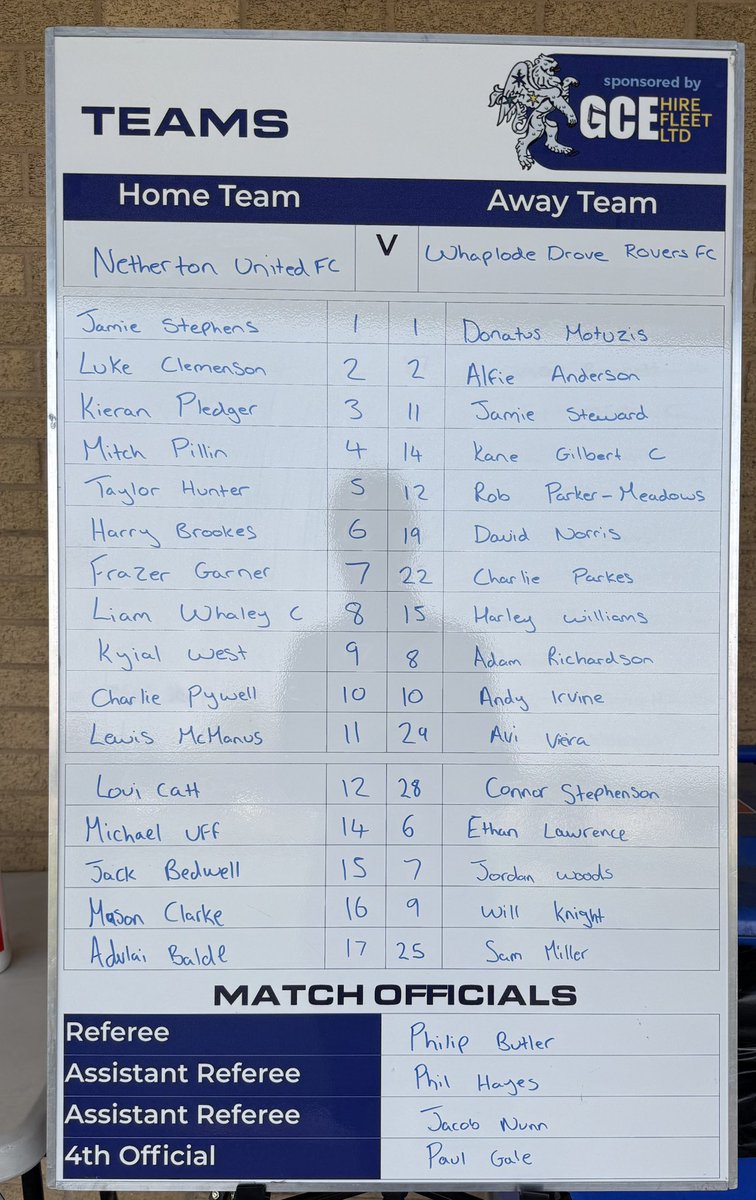 sponsored by
GCE HIRE FLEET LTD
TEAMS
Home Team Away Team
Netherton United FC V Whaplode Drove Rovers FC
Jamie Stephens 1 1 Donatus Motuzis
Luke Clemenson 2 2 Alfie Anderson
Kieran Pledger 3 11 Jamie Steward
Mitch Pillin 4 14 Kane Gilbert C
Taylor Hunter 5 12 Rob Parker-Meadows
Harry Brookes 6 19 David Norris
Frazer Garner 7 22 Charlie Parkes
Liam Whaley C 8 15 Harley Williams
Kyial West 9 8 Adam Richardson
Charlie Pywell 10 10 Andy Irvine
Lewis McManus 11 29 Avi Viera
Loui Catt 12 28 Connor Stephenson
Michael Uff 14 6 Ethan Lawrence
Jack Bedwell 15 7 Jordan Woods
Mason Clarke 16 9 Will Knight
Adulai Balde 17 25 Sam Miller
MATCH OFFICIALS
Referee Philip Butler
Assistant Referee Phil Hayes
Assistant Referee Jacob Nunn
4th Official Paul Gale